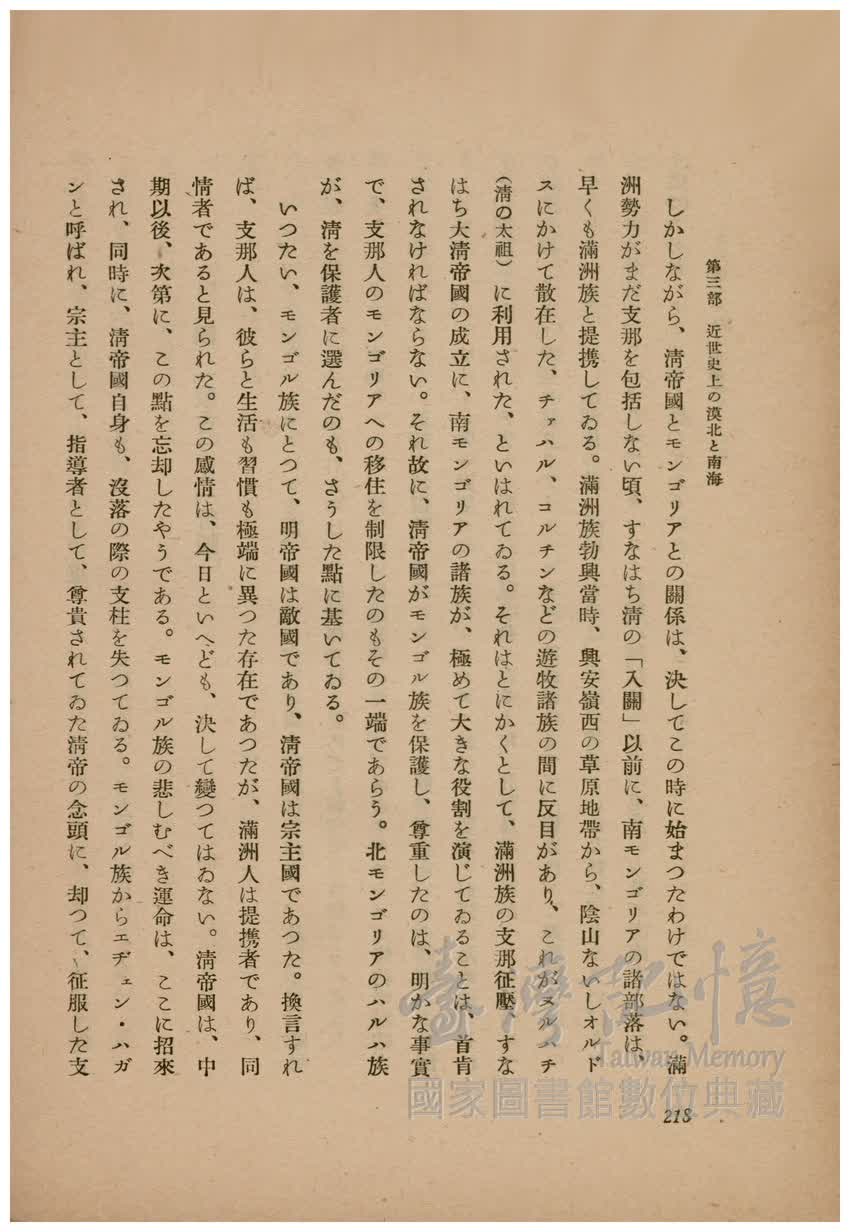 第三部 近世史上の漠北と南海
しかしながら、淸帝國とモンゴリアとの關係は、決してこの時に始まつたわけではない。滿
洲勢力がまだ支那を包括しない頃、すなはち淸の「入關」以前に、南モンゴリアの諸部落は、
早くも滿洲族と提携してゐる。滿洲族勃興當時、興安嶺西の草原地帶から、陰山ないしオルド
スにかけて散在した、チァハル、コルチンなどの遊牧諸族の間に反目があり、これがヌルハチ
(淸の太祖)に利用された、といはれてゐる。それはとにかくとして、滿洲族の支那征壓、すな
はち大淸帝國の成立に、南モンゴリアの諸族が、極めて大きな役割を演じてゐることは、首肯
されなければならない。それ故に、淸帝國がモンゴル族を保護し、尊重したのは、明かな事實
で、支那人のモンゴリアへの移住を制限したのもその一端であらう。北モンゴリアのハルハ族
が、淸を保護者に選んだのも、さうした點に基いてゐる。
いつたい、モンゴル族にとつて、明帝國は敵國であり、淸帝國は宗主國であつた。換言すれ
ば、支那人は、彼らと生活も習慣も極端に異つた存在であつたが、滿洲人は提携者であり、同
情者であると見られた。この感情は、今日といへども、決して變つてはゐない。淸帝國は、中
期以後、次第に、この點を忘却したやうである。モンゴル族の悲しむべき運命は、ここに招來
され、同時に、淸帝國自身も、沒落の際の支柱を失つてゐる。モンゴル族からエヂェン・ハガ
ンと呼ばれ、宗主として、指導者として、尊貴されてゐた淸帝の念頭に、却つて、征服した支
218
臺灣記憶
Taiwan Memory
國家圖書館數位典藏